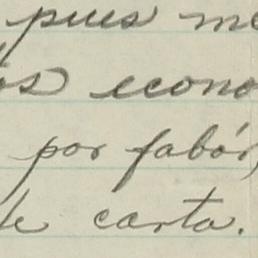 pues me
os econo
por fabór,
de carta.